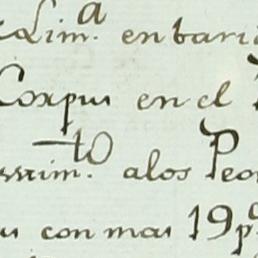 Lim.ª en bari
Corpus en el
ssim.to alos Peo
con mas 19 p.s